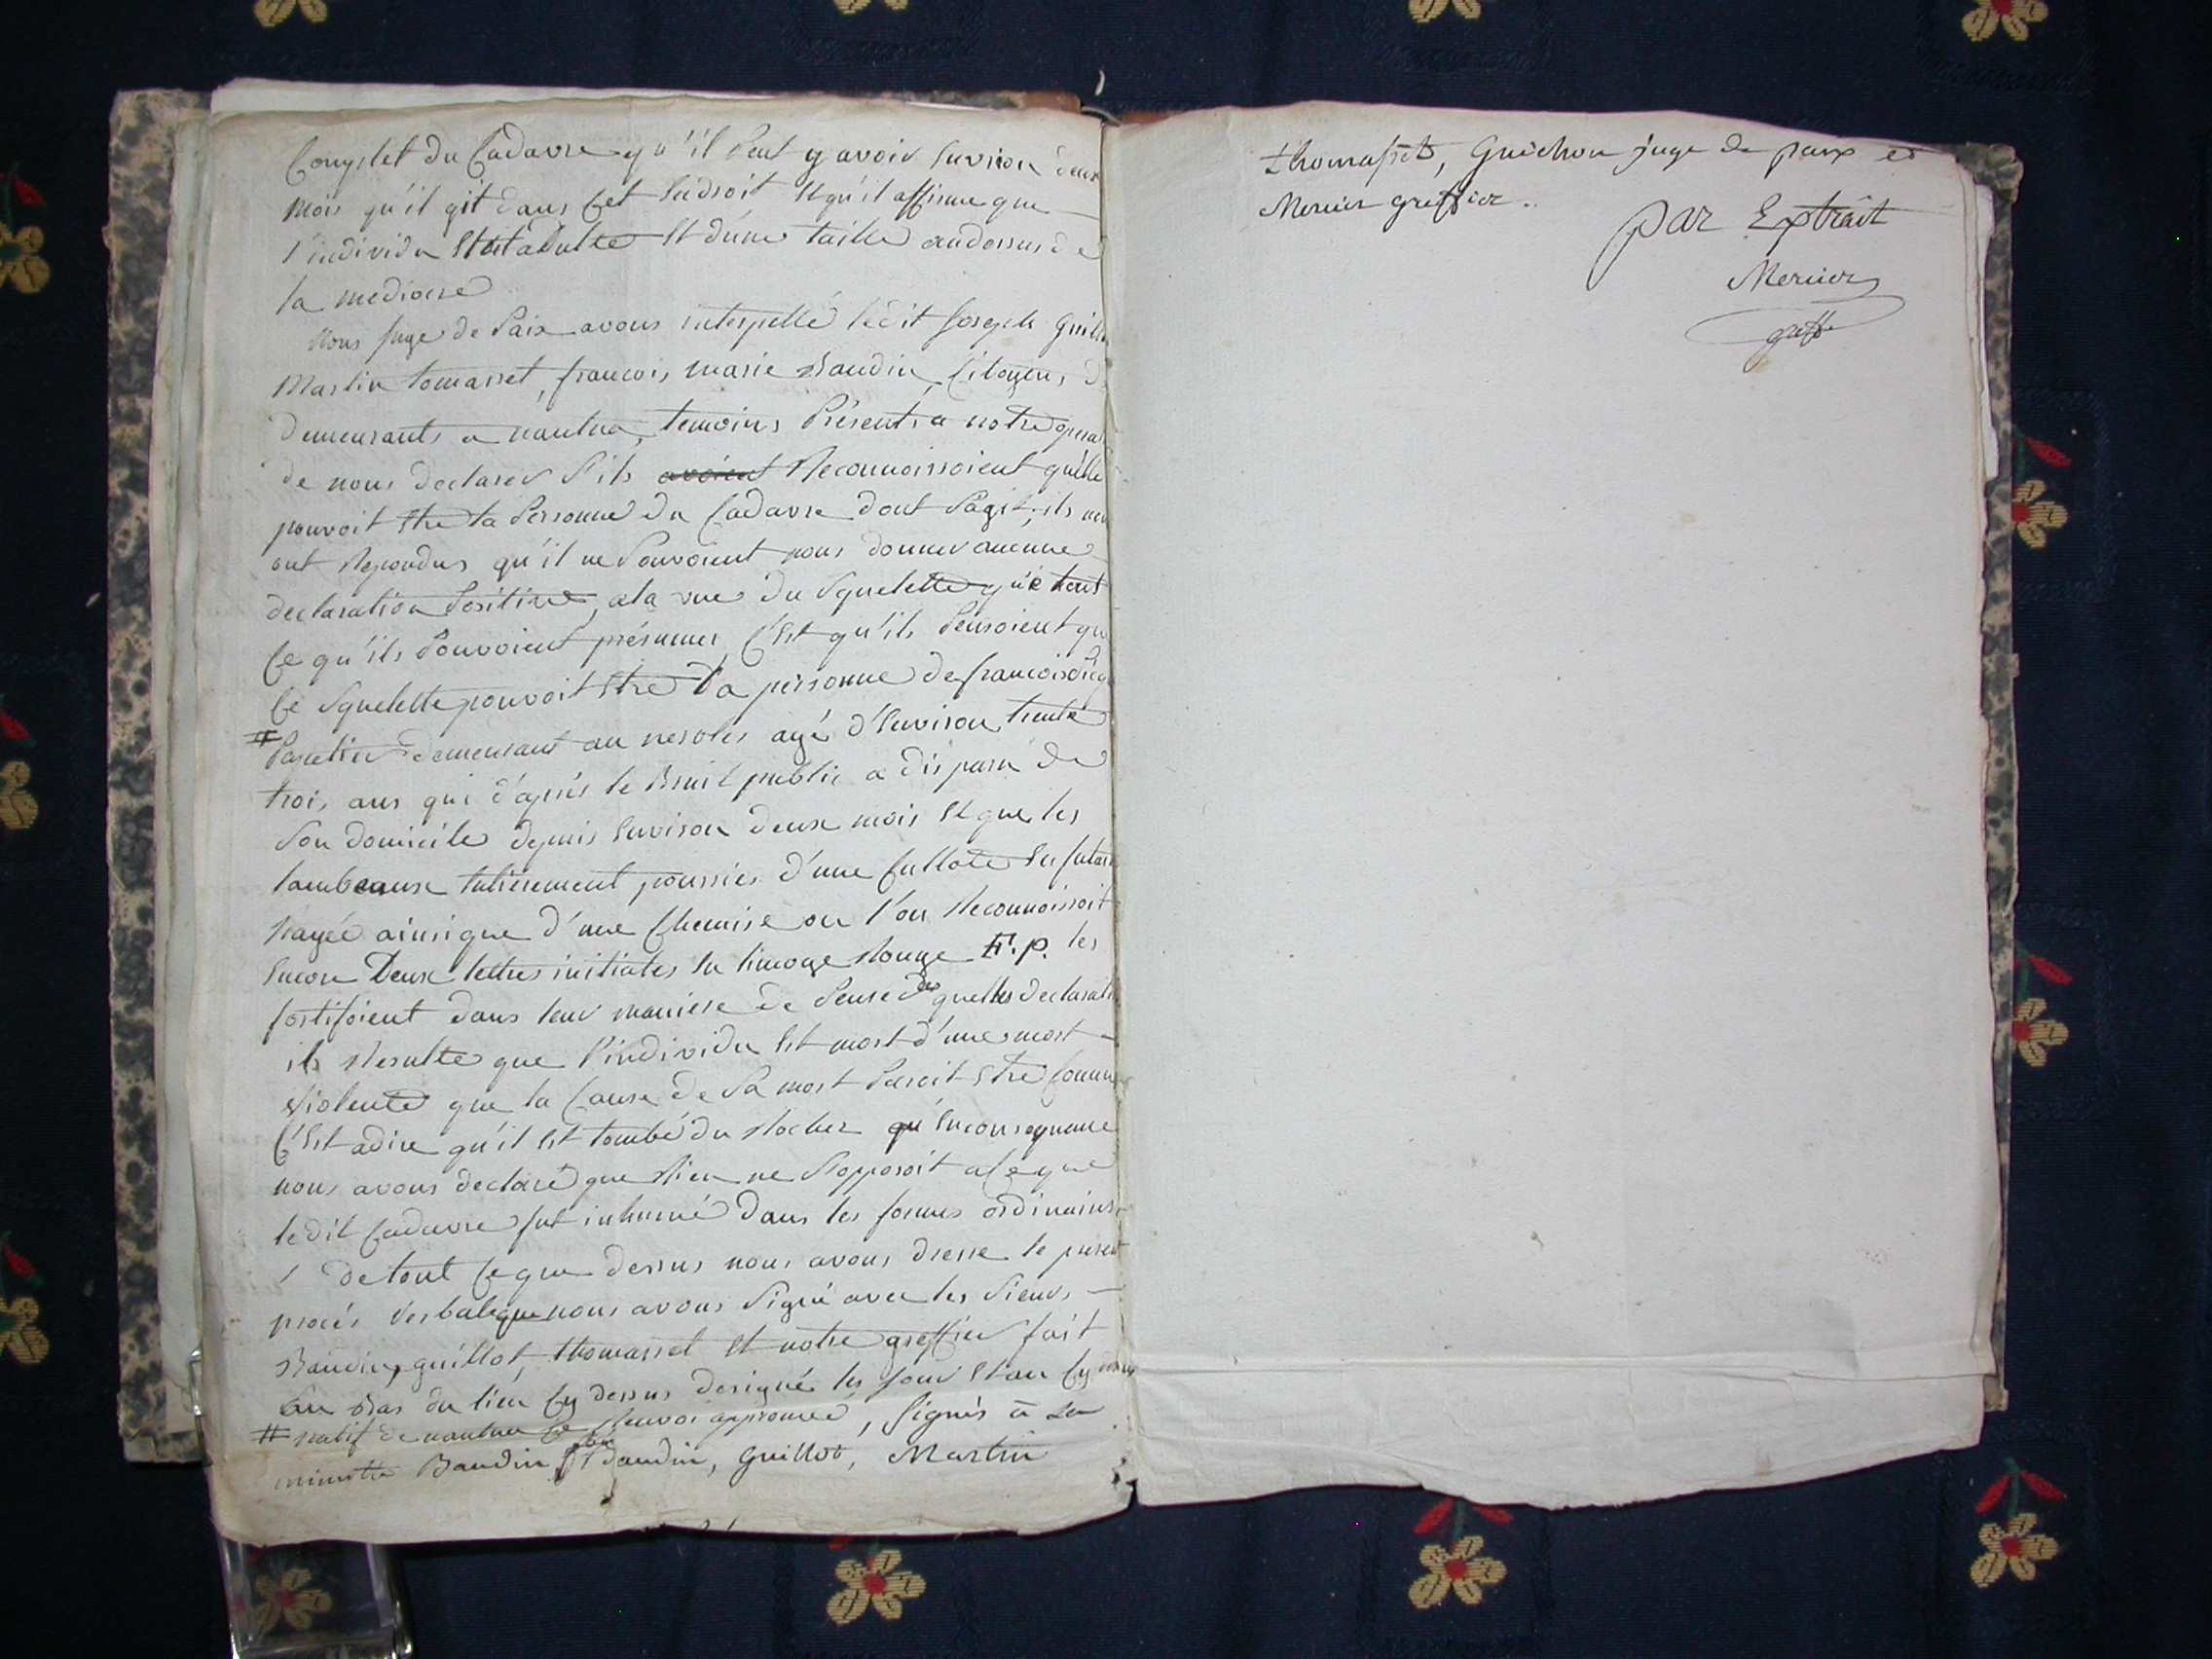 Complet du Cadavre qu'il Peut y avoir Environ deux
mois qu'il git dans Cet Endroit Et qu'il affirme que
l'individu Etat adulte Et d'une taille audessus de
la mediocre
Nous Juge de Paix avons interpellé ledit Joseph
Martin tomasset, francois marie Baudin, Citoyens
demeurants a nantua, temoins Présents a notre
de nous declarer S'ils avoient Reconnoissoient qu'elle
pouvoit Etre la Personne du Cadavre dont Sagit, ils
ont Repondus qu'il ne Pouvoient nous donner aucune
declaration Positive, ala vue du Squelette que tout
Ce qu'ils Pouvoient présumer C'Est qu'ils Pensoient
Ce Squelette pouvoit Etre la personne de francois
demeurant au neroles agé d'Environ trente
trois ans qui d'aprés le Bruit public a disparu de
Son domicile depuis Environ deux mois Et que les
lambeaux Entierement pourries d'une Cullote En
Rayée ainsi que d'une Chemise ou l'on Reconnoissoit
Encore Deux lettres initiales En limoge Rouge F.P. les
fortifoient dans leur maniere de Pensé desquelles
il Resulte que l'individu Est mort d'une mort
Violente que la Cause de Sa mort Paroit Etre
C'Est adire qu'il Est tombé du Rocher qu' Enconsequence
nous avons declaré que Rien ne S'opposoit a Ce que
ledit Cadavre fut inhumé Dans les formes ordinaires
de tout Ce que dessus nous avons dressé le present
procés Verbal que nous avons Signé avec les Sieurs
Baudin, guillot, thomasset Et notre greffier fait
au Bas du lieu Cy dessus designé les Jour Et an Cy
# natif de nantua Ce Renvoi approuvé, Signés à la
minutte Baudin Baudin, Guillot, Martin
thomasset, Guichon juge de paix et
Mercier greffier.
par Extrait
Mercier
greff.